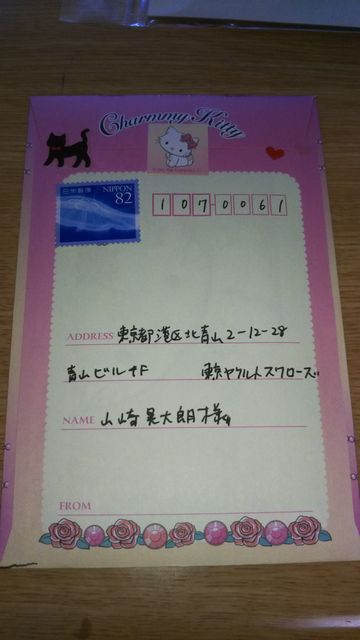 Charmmy Kitty
日本郵便
NIPPON
82
107-0061
ADDRESS 東京都港区北青山2-12-28
青山ビル4F 東京ヤクルトスワローズ
NAME 山崎晃大朗様
FROM